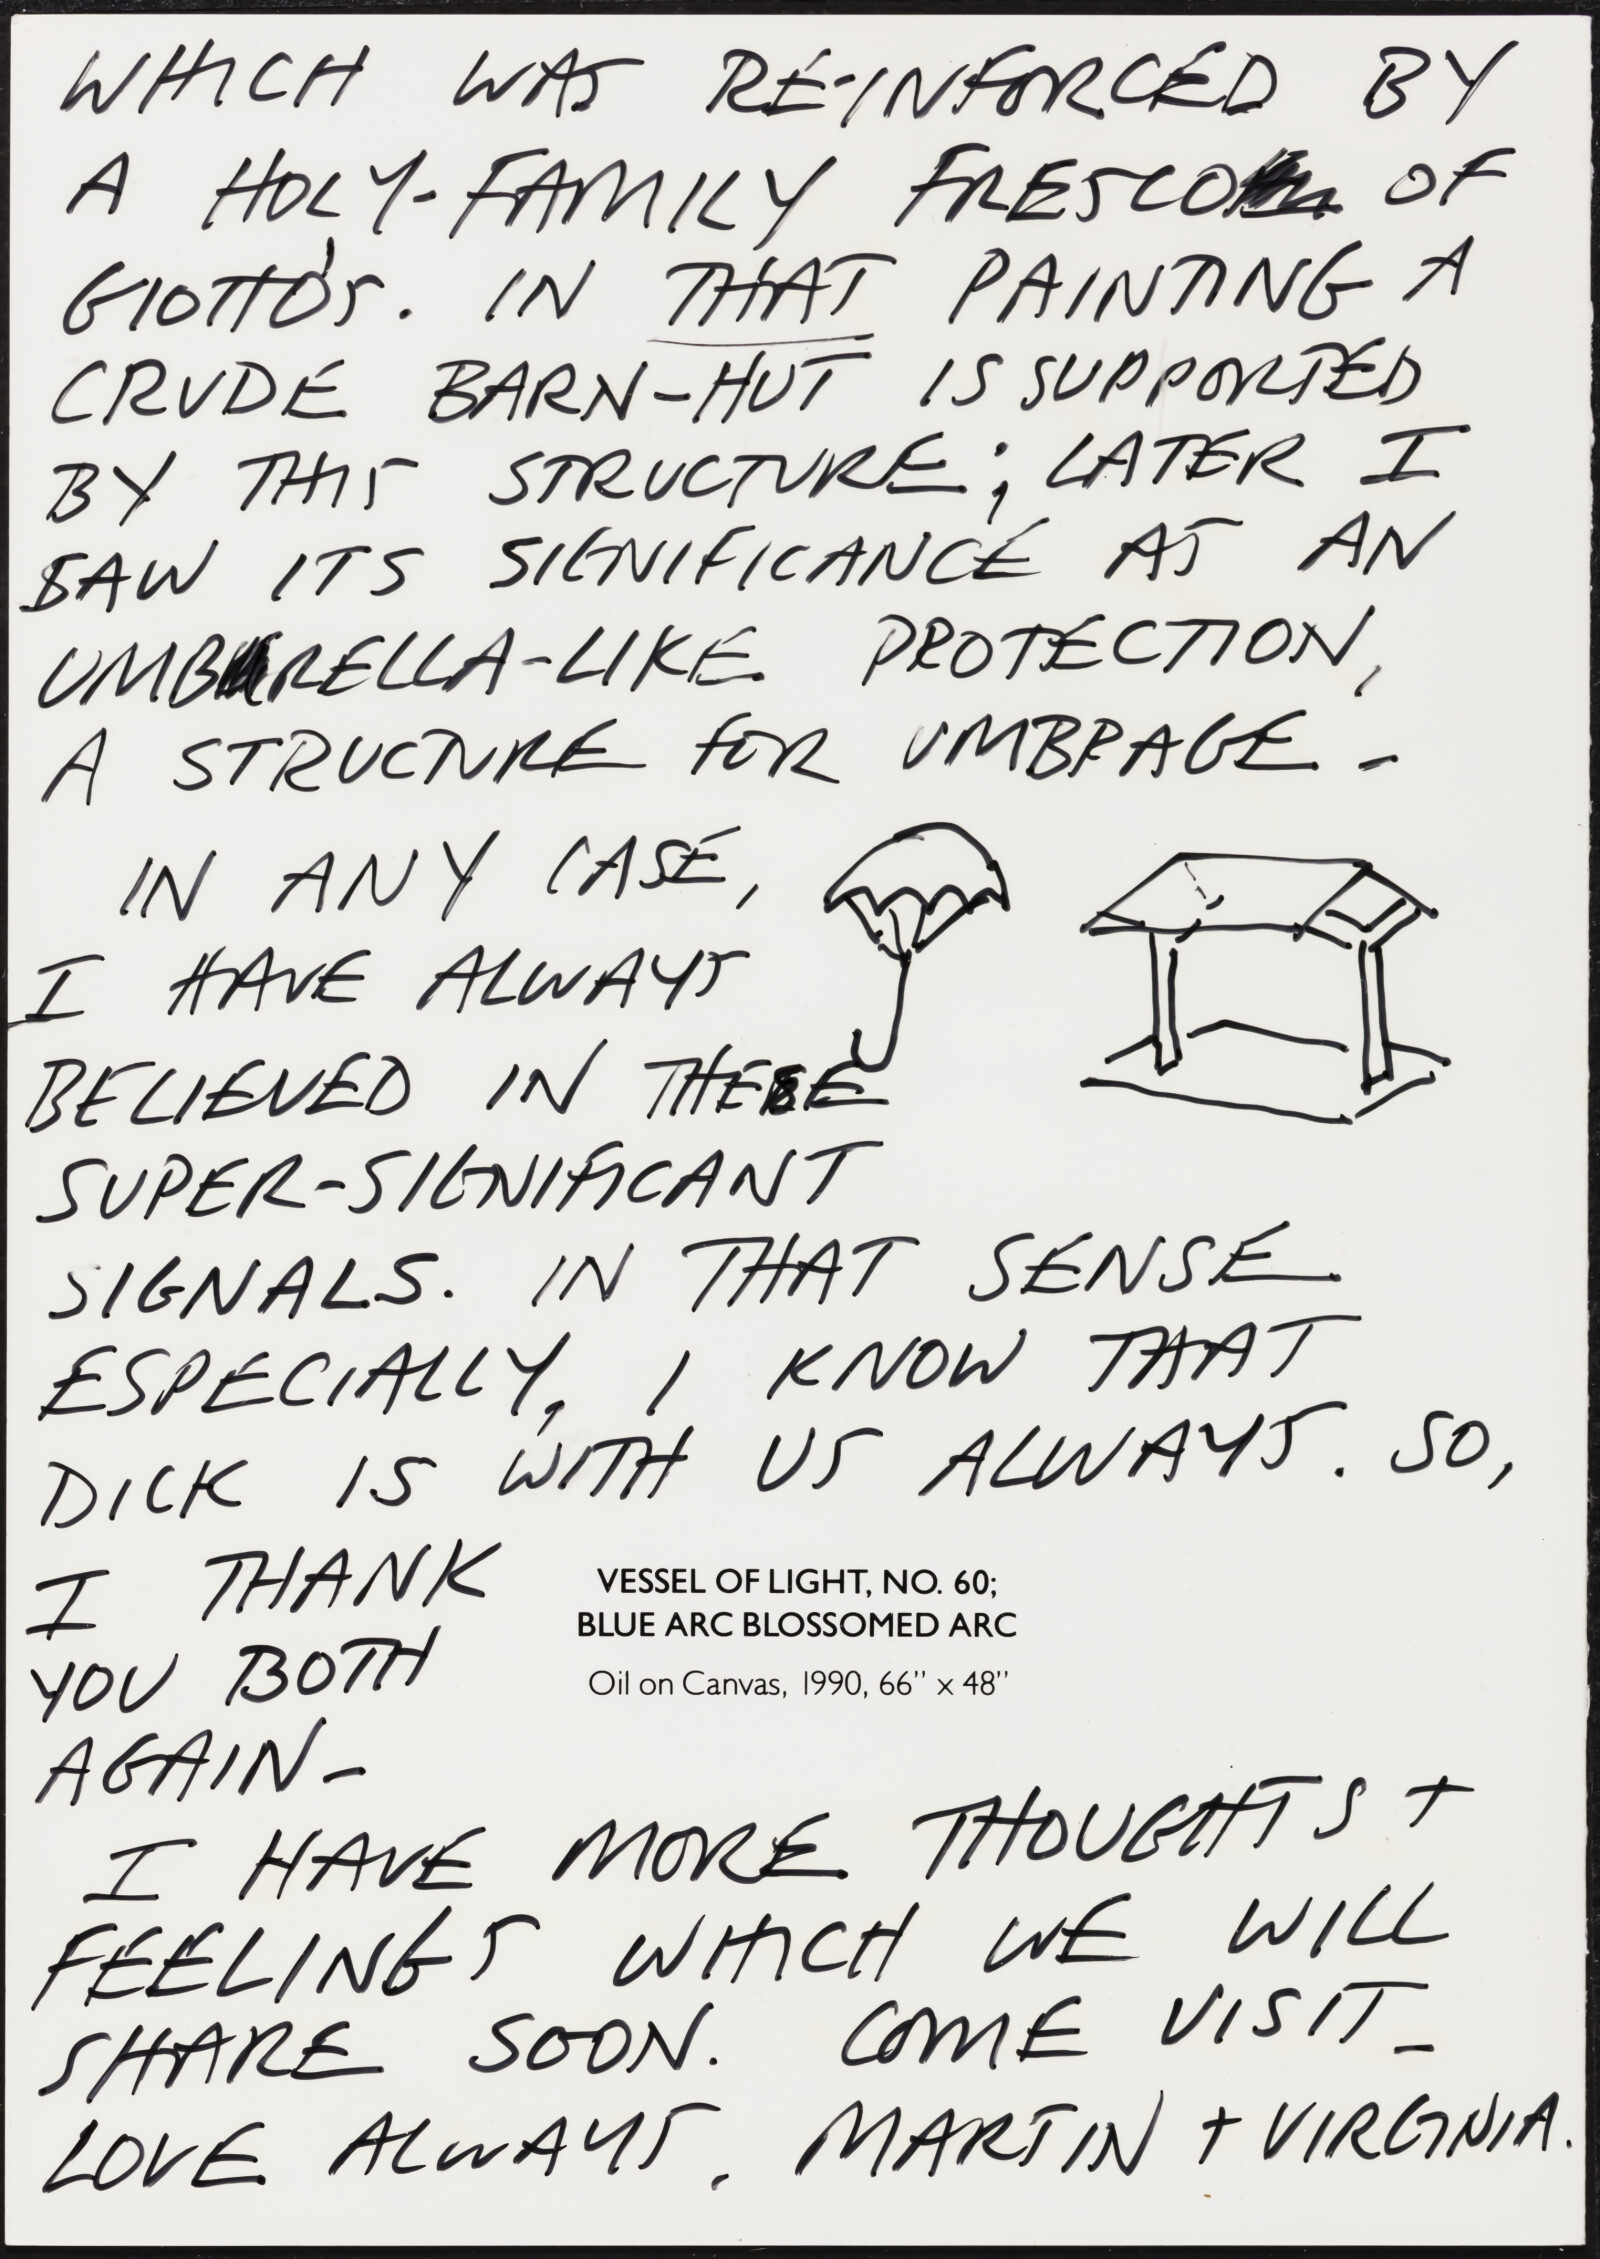 WHICH WAS RE-INFORCED BY
A HOLY-FAMILY FRESCO OF
GIOTTO'S. IN THAT PAINTING A
CRUDE BARN-HUT IS SUPPORTED
BY THIS STRUCTURE; LATER I
SAW ITS SIGNIFICANCE AS AN
UMBRELLA-LIKE PROTECTION,
A STRUCTURE FOR UMBRAGE -
IN ANY CASE,
I HAVE ALWAYS
BELIEVED IN THESE
SUPER-SIGNIFICANT
SIGNALS. IN THAT SENSE
ESPECIALLY, I KNOW THAT
DICK IS WITH US ALWAYS. SO,
I THANK
YOU BOTH
AGAIN-
VESSEL OF LIGHT, NO. 60;
BLUE ARC BLOSSOMED ARC
Oil on Canvas, 1990, 66" x 48"
I HAVE MORE THOUGHTS +
FEELINGS WHICH WE WILL
SHARE SOON. COME VISIT-
LOVE ALWAYS, MARTIN + VIRGINIA.